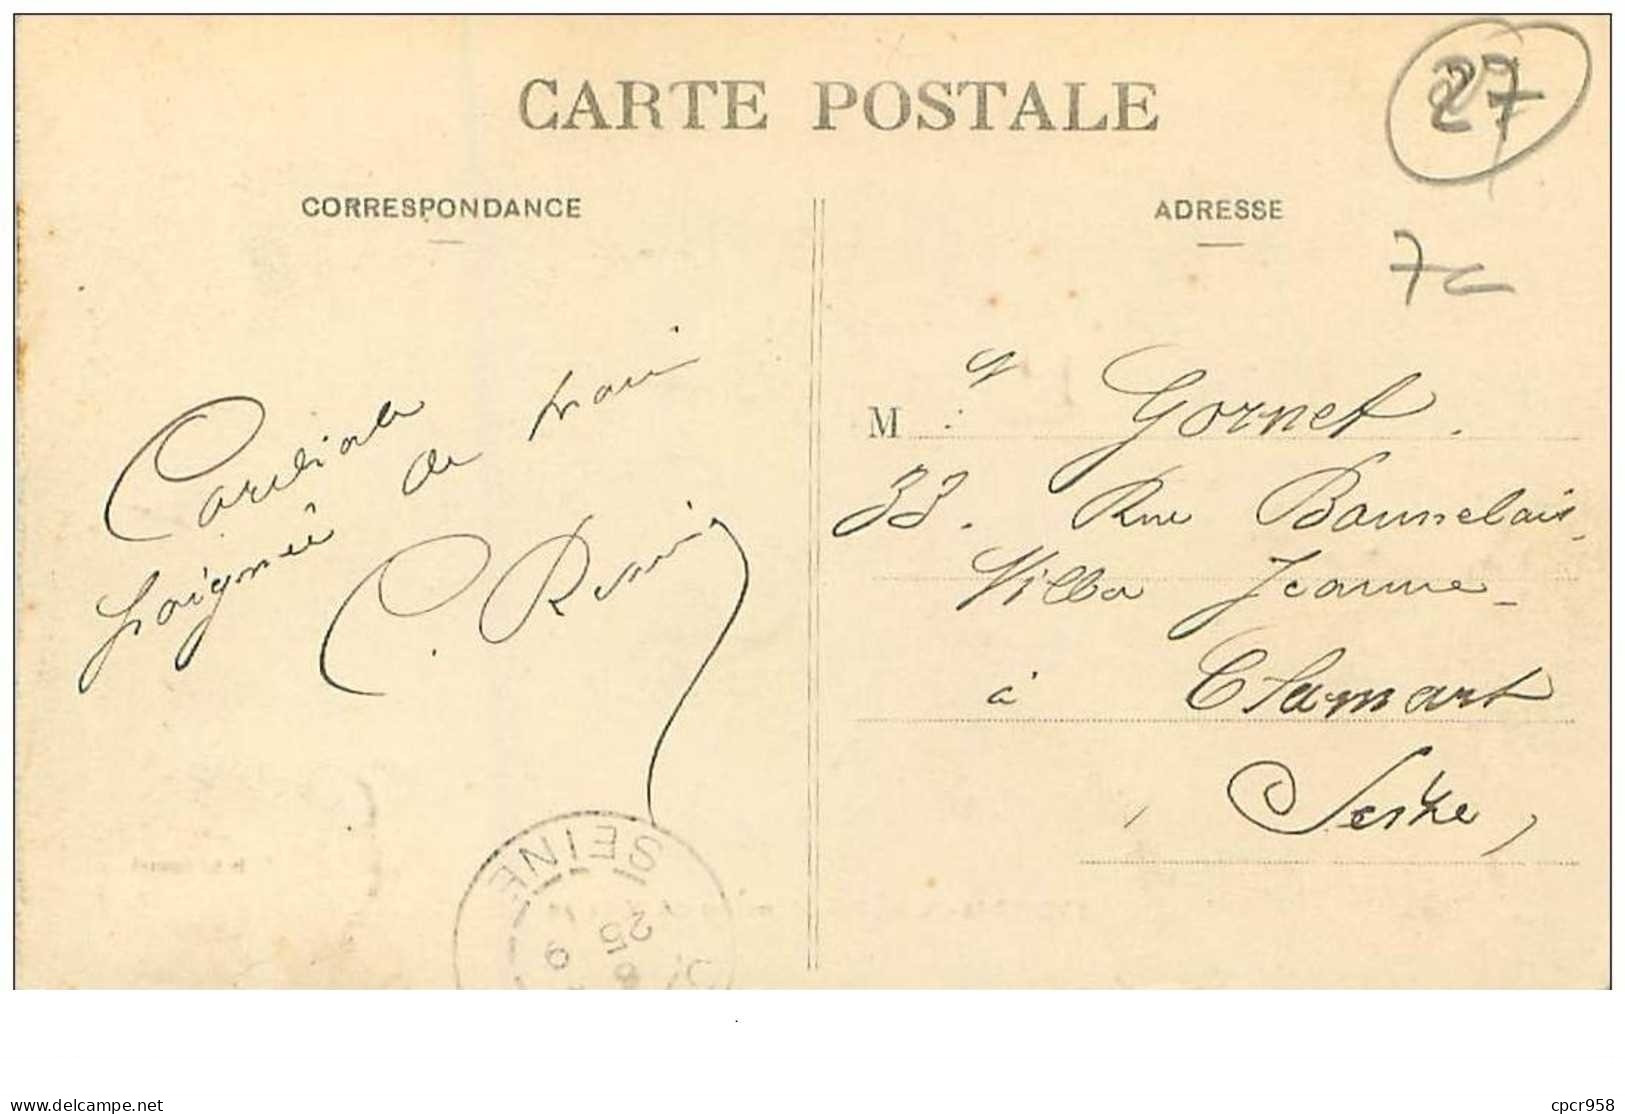 CARTE POSTALE
27
CORRESPONDANCE
ADRESSE
7c
Cordiale
poignée de main
M r Gornet.
33. Rue
Villa Jeanne
à Clamart
Seine,
SEINE
25
Delcampe.net
cpcr958